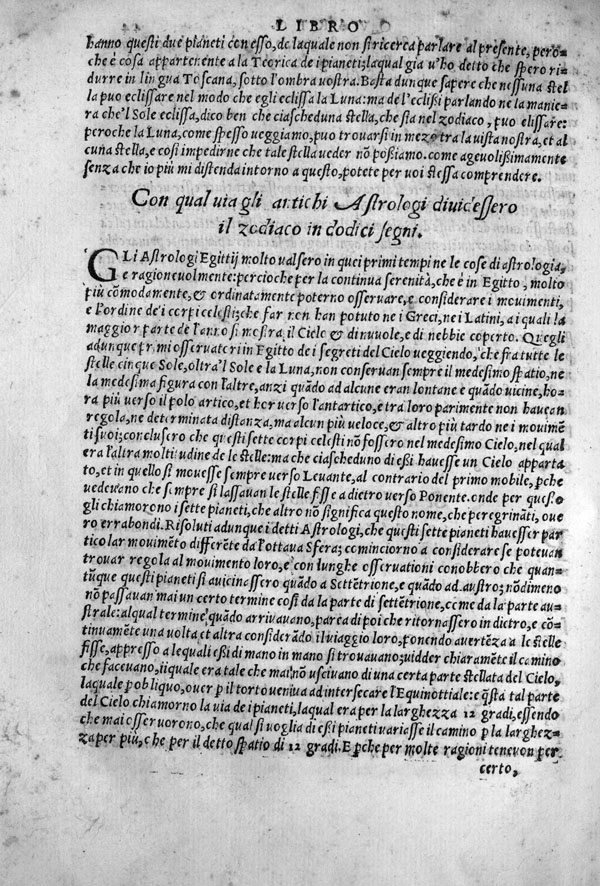 LIBRO
hanno questi due pianeti con esso, de laquale non si ricerca parlare al presente, pero=
che è cosa appartenente a la Teorica de i pianeti; laqual gia v'ho detto che spero ri=
durre in lingua Toscana, sotto l'ombra vostra. Basta dunque sapere che nessuna stel
la puo eclissare nel modo che egli eclissa la Luna: ma de l'eclißi parlando ne la manie=
ra che'l Sole eclissa, dico ben che ciascheduna stella, che sta nel zodiaco, puo elissare:
peroche la Luna, come spesso veggiamo, puo trouarsi in mezo tra la vista nostra, et al
cuna stella, e cosi impedirne che tale stella veder nõ poßiamo. come ageuolißimamente
senza che io più mi distenda intorno a questo, potete per voi stessa comprendere.
Con qual uia gli antichi Astrologi diuidessero
il zodiaco in dodici segni.
GLi Astrologi Egittij molto valsero in quei primi tempi ne le cose di astrologia,
e ragioneuolmente: percioche per la continua serenità, che è in Egitto, molto
più cõmodamente, & ordinatamente poterno osseruare, e considerare i mouimenti,
e l'ordine de i corpi celesti; che far non han potuto ne i Greci, ne i Latini, a i quali la
maggior parte de l'anno si mostra il Cielo & di nuuole, e di nebbie coperto. Quegli
adunque primi osseruatori in Egitto de i segreti del Cielo veggendo, che fra tutte le
stelle cinque Sole, oltra'l Sole e la Luna, non conseruan sempre il medesimo spatio, ne
la medesima figura con l'altre, anzi quãdo ad alcune eran lontane e quãdo vicine, ho
ra più verso il polo artico, et hor verso l'antartico, e tra loro parimente non haueuan
regola, ne determinata distanza, ma alcun più veloce, & altro più tardo ne i mouimẽ
ti suoi; conclusero che questi sette corpi celesti nõ fossero nel medesimo Cielo, nel qual
era l'altra moltitudine de le stelle: ma che ciascheduno di eßi hauesse un Cielo apparta
to, et in quello si mouesse sempre verso Leuante, al contrario del primo mobile, pche
vedeuano che sempre si lassauan le stelle fisse a dietro verso Ponente. onde per questo
gli chiamorono i sette pianeti, che altro nõ significa questo nome, che peregrinãti, oue
ro errabondi. Risoluti adunque i detti Astrologi, che questi sette pianeti hauesser par
ticolar mouimẽto differẽte da l'ottaua Sfera; cominciorno a considerare se poteuan
trouar regola al mouimento loro, e con lunghe osseruationi conobbero che quan=
tũque questi pianeti si auicinassero quãdo a Settẽtrione, e quãdo ad austro; nõdimeno
nõ passauan mai un certo termine cosi da la parte di settẽtrione, come da la parte au=
strale: alqual termine quãdo arriuauano, parea di poi che ritornassero in dietro, e cõ=
tinuamẽte una volta, et altra considerãdo il viaggio loro, ponendo auertẽza a le stelle
fisse, appresso a lequali eßi di mano in mano si trouauano; vidder chiaramẽte il camino
che faceuano, ilquale era tale che mai nõ usciuano di una certa parte stellata del Cielo,
laquale p obliquo, ouer p il torto veniua ad intersecare l'Equinottiale: e q̃sta tal parte
del Cielo chiamorno la via de i pianeti, laqual era per la larghezza 12 gradi, essendo
che mai osseruorono, che qual si voglia di eßi pianeti variasse il camino p la larghez=
za per più, che per il detto spatio di 12 gradi. E pche per molte ragioni teneuon per
certo,